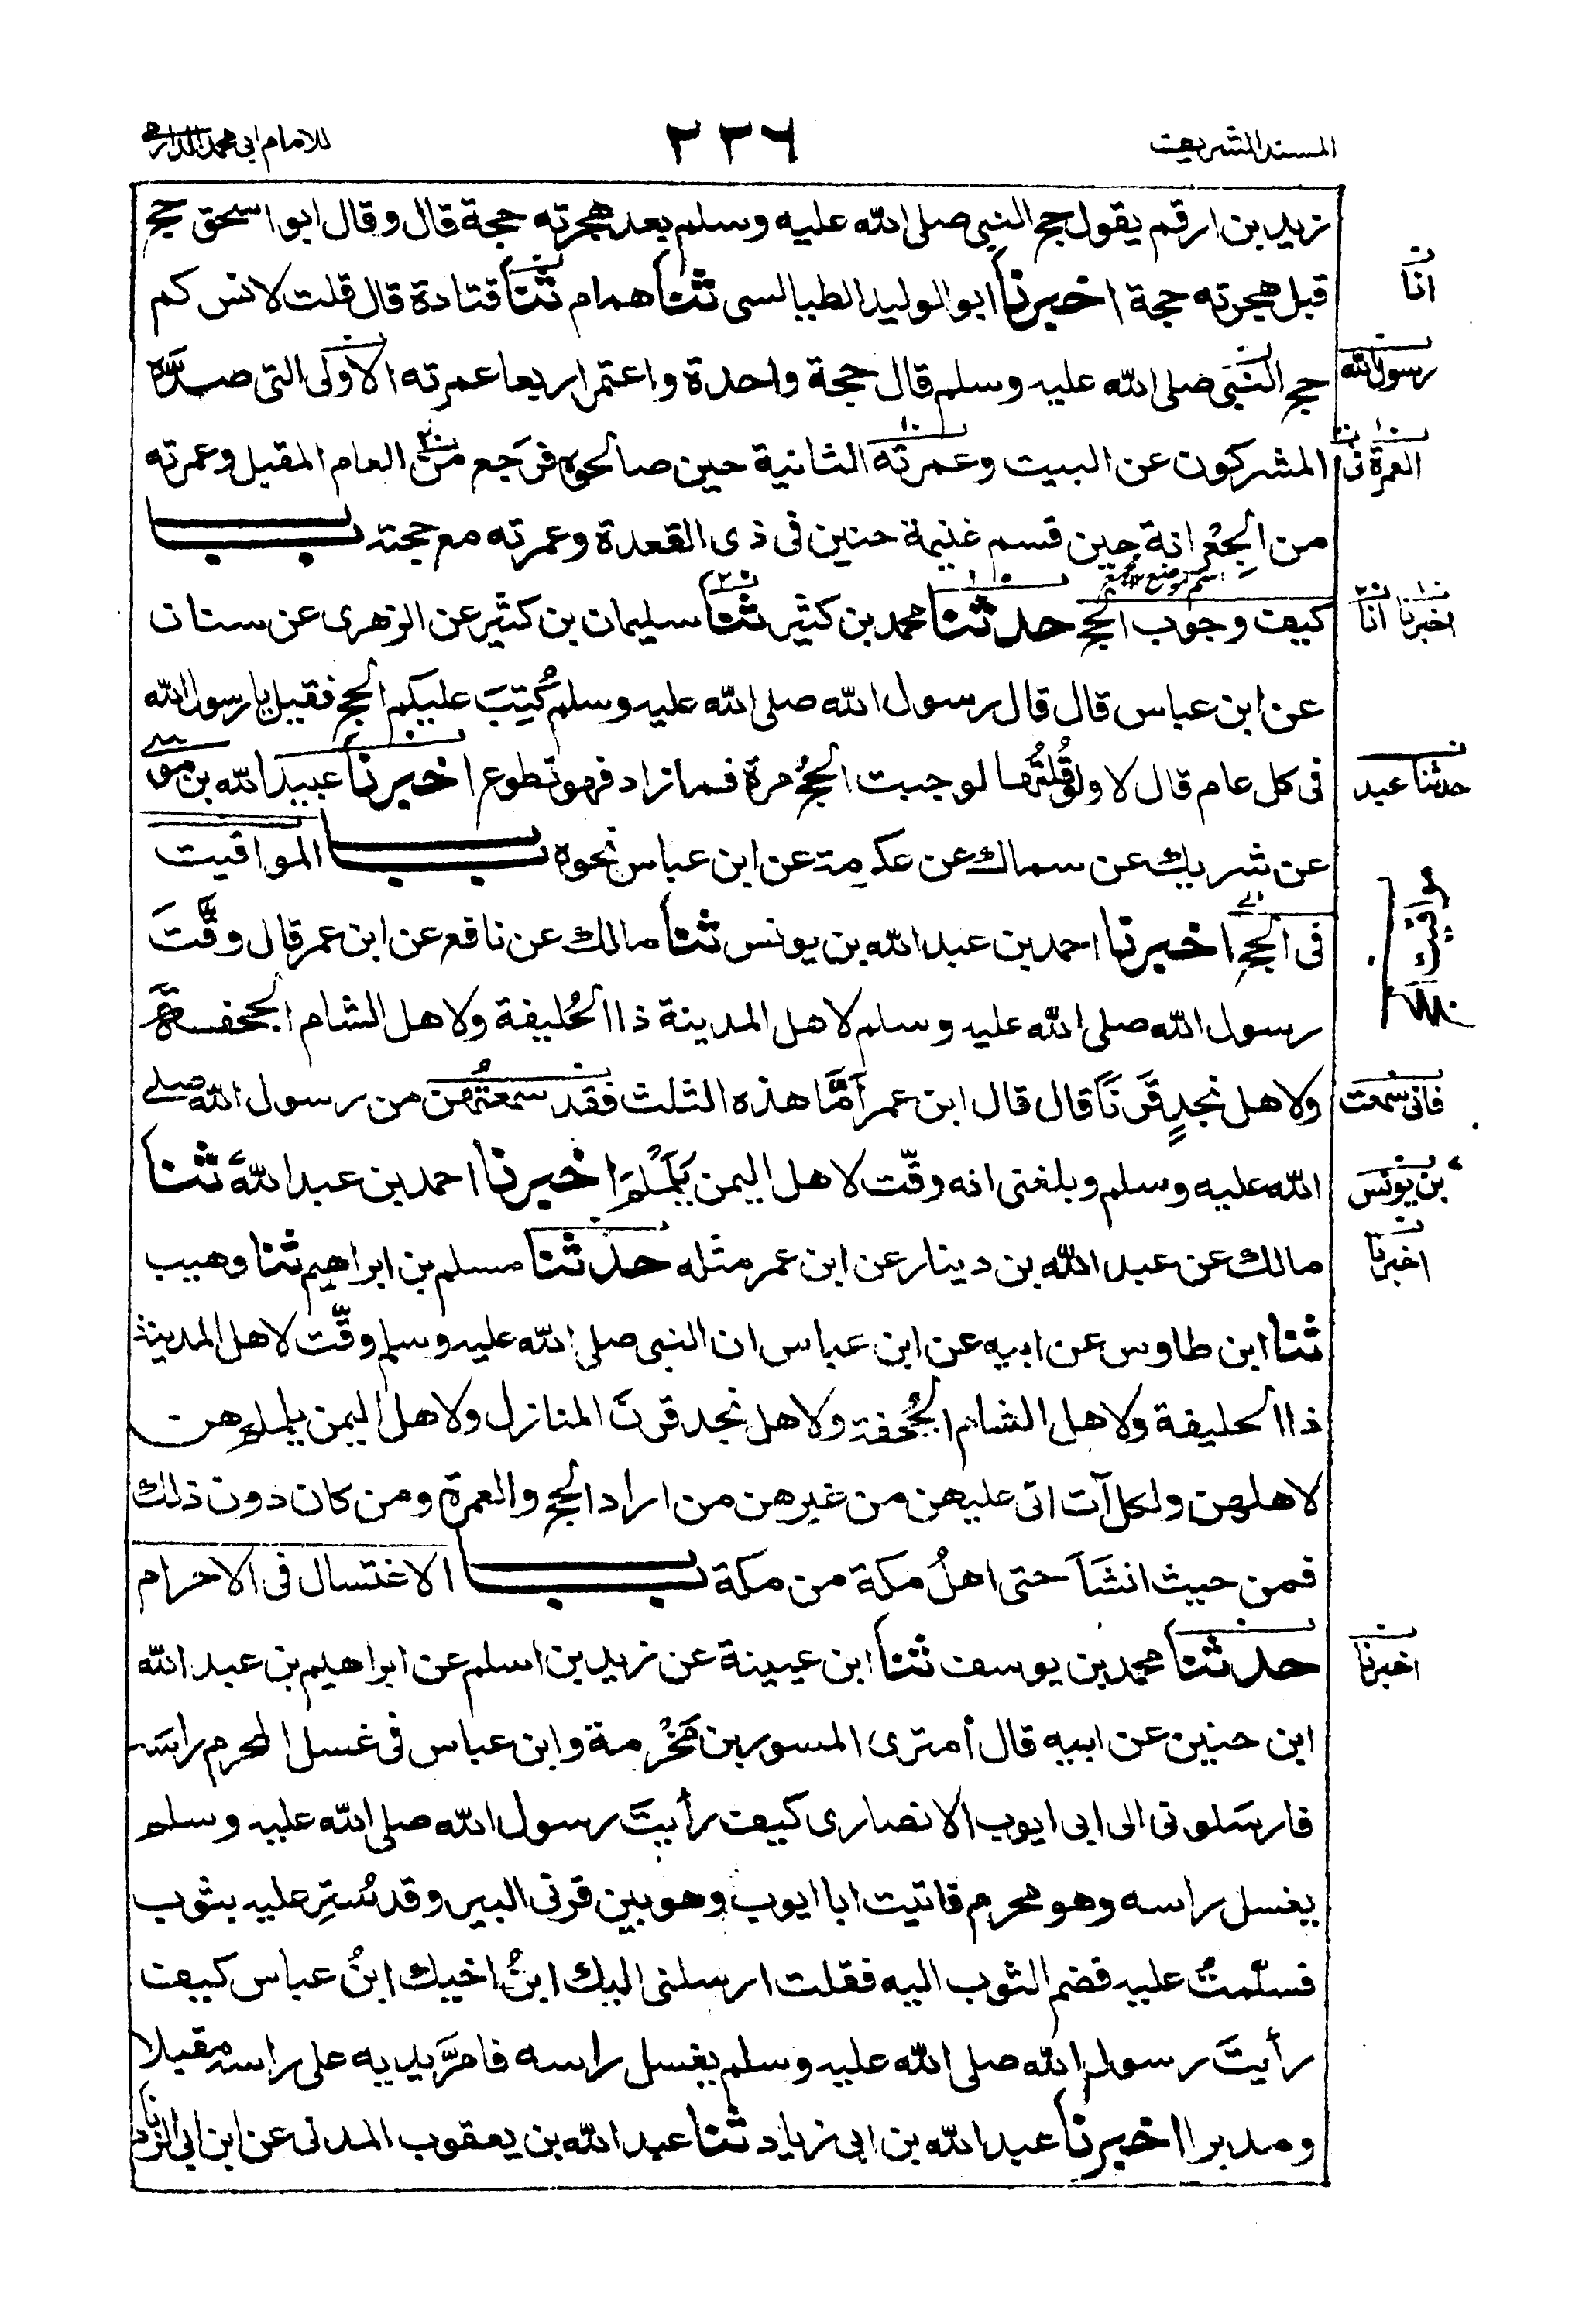 المسند الشريف
٢٢٦
للامام ابي محمد الدارمي
زيد بن ارقم يقول حج النبي صلى الله عليه وسلم بعد هجرته حجة قال وقال ابو اسحق حج
قبل هجرته حجة اخبرنا ابو الوليد الطيالسى ثنا همام ثنا قتادة قال قلت لانس كم
حج النبي صلى الله عليه وسلم قال حجة واحدة واعتمر اربعا عمرته الاولى التى صدّه
المشركون عن البيت وعمرته الثانية حين صالحوه فرجع من العام المقبل وعمرته
من الجِعْرانة حين قسم غنيمة حنين فى ذى القعدة وعمرته مع حجته بـــاب
اسم موضع
كيف وجوب الحج حدثنا محمد بن كثير ثنا سليمان بن كثير عن الزهرى عن سنان
عن ابن عباس قال قال رسول الله صلى الله عليه وسلم كُتِبَ عليكم الحج فقيل يا رسول الله
فى كل عام قال لا ولو قُلتُها لوجبت الحجُّ مرة فما زاد فهو تطوع اخبرنا عبيد الله بن موسى
عن شريك عن سماك عن عكرمة عن ابن عباس نحوه بـــاب المواقيت
فى الحج اخبرنا احمد بن عبد الله بن يونس ثنا مالك عن نافع عن ابن عمر قال وقَّتَ
رسول الله صلى الله عليه وسلم لاهل المدينة ذا الحُليفة ولاهل الشام الجحفة
ولاهل نجدٍ قَرنَا قال قال ابن عمر اَمَّا هذه الثلث فقد سمعتُهن من رسول الله صلى
الله عليه وسلم وبلغنى انه وقّت لاهل اليمن يَلَمْلَم اخبرنا احمد بن عبد الله ثنا
مالك عن عبد الله بن دينار عن ابن عمر مثله حدثنا مسلم بن ابراهيم ثنا وهيب
ثنا ابن طاوس عن ابيه عن ابن عباس ان النبى صلى الله عليه وسلم وقّت لاهل المدينة
ذا الحليفة ولاهل الشام الجُحفة ولاهل نجد قرنَ المنازل ولاهل اليمن يلملم هن
لاهلهن ولكل آت اتى عليهن من غيرهن من اراد الحج والعمرة ومن كان دون ذلك
فمن حيث انشَاَ حتى اهلُ مكة من مكة بـــاب الاغتسال فى الاحرام
حدثنا محمد بن يوسف ثنا ابن عيينة عن زيد بن اسلم عن ابراهيم بن عبد الله
ابن حنين عن ابيه قال أمترى المسور بن مَخْرمة وابن عباس فى غسل المحرم راسَه
فارسَلونى الى ابى ايوب الانصارى كيف رأيتَ رسول الله صلى الله عليه وسلم
يغسل راسه وهو محرم فاتيت ابا ايوب وهو بين قرنى البير وقد سُتِر عليه بثوب
فسلّمتُ عليه فضم الثوب اليه فقلت ارسلنى اليك ابنُ اخيك ابنُ عباس كيف
رأيتَ رسول الله صلى الله عليه وسلم يغسل راسه فامرَّ يديه على راسه مقبلا
ومدبرا اخبرنا عبد الله بن ابى زياد ثنا عبد الله بن يعقوب المدنى عن ابن ابى الزناد
انا
رسول الله
العمرة فى
اخبرنا انا
حدثنا عبد
مواقيت
فانى سمعت
بن يونس
اخبرنا
اخبرنا